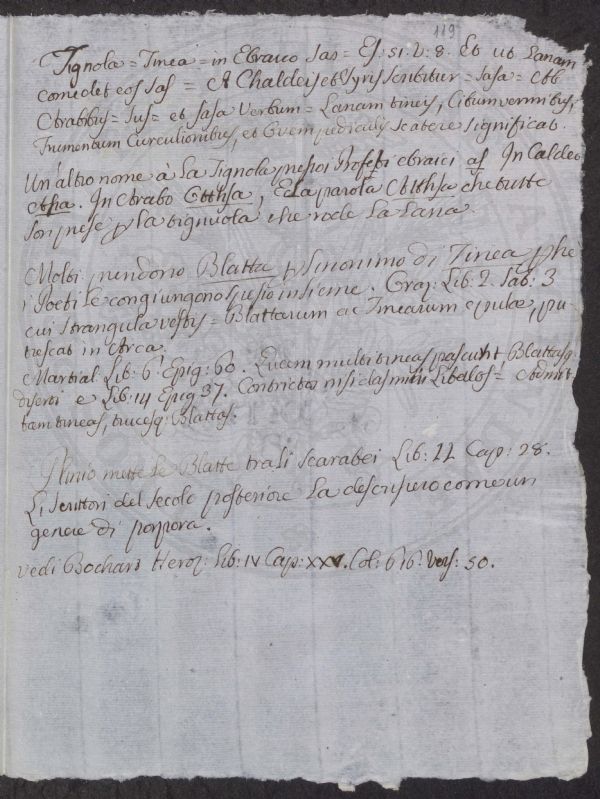 119
Tignola = Tinea = in Ebraico Sas = Es: 51. v: 8. Et ut Lanam
comedet eos Sas = A Chaldeis et Syris scribitur = Sasa = Ab
Arabbis = Sus = et Sasa Verbum = Lanam tineis, Cibum vermibus,
Frumentum Curculionibus, et Ovem pediculis scatere significat.
Un altro nome à La Tignola presso i Profeti ebraici as In Caldeo
Atsa. In Arabo Otthsa, E La parola Atthsa che tutte
son prese p La tignuola che rode La Lana.
Molti prendono Blatta p sinonimo di Tinea p che
i Poeti Le congiungono spesso insieme. Oraz: Lib: 2. Sat: 3
cui stragula vestis = Blattarum ac Tinearum epulae, pu
trescat in Arca.
Martial. Lib: 6 Epig: 60. Quam multi tineas pascunt Blattasq
diserti e Lib: 14 Epig 37. Constrictos nisi das mihi Libellos = Admit
tam tineas, trucesq: Blattas.
Plinio mette Le Blatte tra li scarabei Lib: 11 Cap: 28.
Li scrittori del secolo posteriore La descrissero come un
genere di porpora.
vedi Bochart Hieroz: Lib: IV Cap: XXV. Col: 616. Vers: 50.